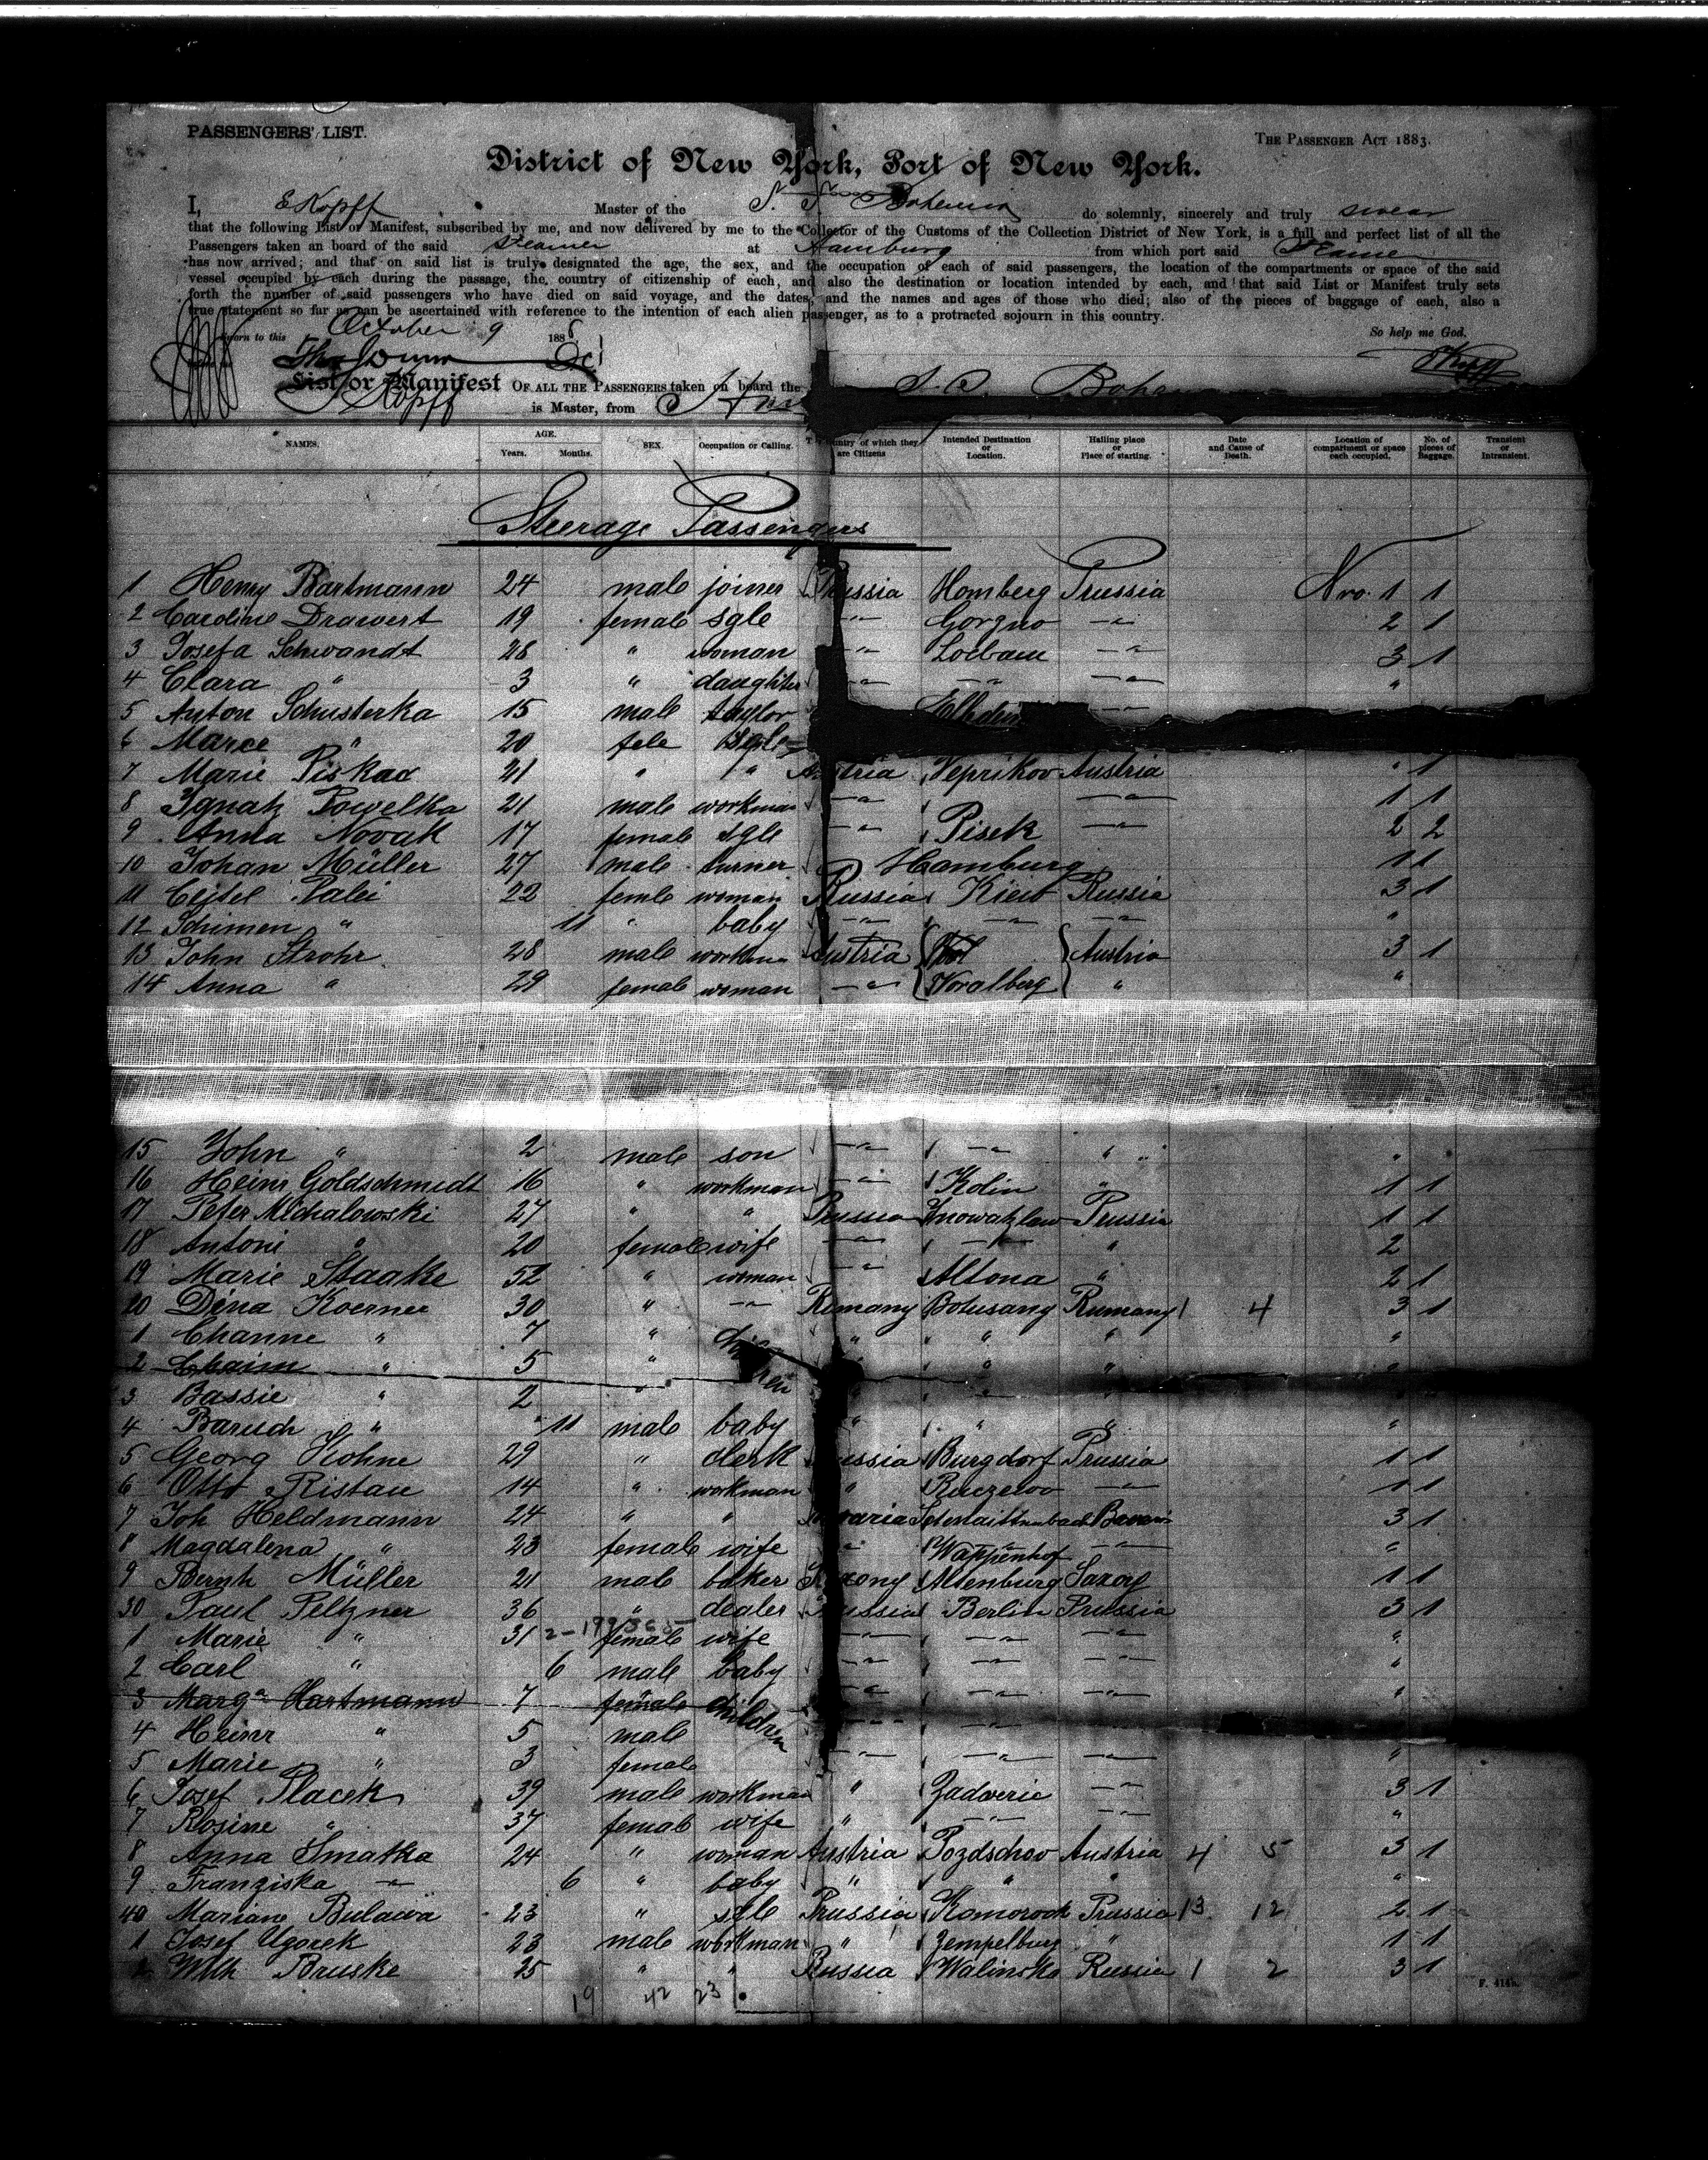 PASSENGERS' LIST.
THE PASSENGER ACT 1883.
District of New York, Port of New York.
I, E Kopff Master of the S. S. Bohemia do solemnly, sincerely and truly swear
that the following List or Manifest, subscribed by me, and now delivered by me to the Collector of the Customs of the Collection District of New York, is a full and perfect list of all the
Passengers taken an board of the said steamer at Hamburg from which port said Steamer
has now arrived; and that on said list is truly designated the age, the sex, and the occupation of each of said passengers, the location of the compartments or space of the said
vessel occupied by each during the passage, the country of citizenship of each, and also the destination or location intended by each, and that said List or Manifest truly sets
forth the number of said passengers who have died on said voyage, and the dates, and the names and ages of those who died; also of the pieces of baggage of each, also a
true statement so far as can be ascertained with reference to the intention of each alien passenger, as to a protracted sojourn in this country.
Sworn to this October 9 188
So help me God.
List or Manifest OF ALL THE PASSENGERS taken on board the S. S. Bohemia
Kopff is Master, from
NAMES. AGE. Years. Months. SEX. Occupation or Calling. The Country of which they are Citizens Intended Destination or Location. Halling place or Place of starting. Date and Cause of Death. Location of compartment or space each occupied. No. of pieces of Baggage. Transient or Intransient.
Steerage Passengers
1 Henry Bartmann 24 male joiner Prussia Homberg Prussia Nro. 1 1
2 Caroline Drawert 19 female sgle -"- Gorzno -"- 2 1
3 Josefa Schwandt 28 " woman -"- Loebau -"- 3 1
4 Clara " 3 " daughter -"- -"- -"- "
5 Anton Schusterka 15 male taylor -"-
6 Marce " 20 fele sgle
7 Marie Piskac 21 " " Austria Veprikov Austria " 1
8 Ignatz Powelka 21 male workman -"- -"- 1 1
9 Anna Novak 17 female sgle -"- Pisek -"- 2 2
10 Johan Müller 27 male turner Hamburg 1 1
11 Ceitel Palei 22 femle woman Russia Kiew Russia 3 1
12 Schimen " 11 " baby -"- -"- -"- "
13 John Strohr 28 male workman Austria Austria 3 1
14 Anna " 29 female woman -"- Voralberg " "
15 John " 2 male son -"- -"- " "
16 Heinr Goldschmidt 16 " workman -"- Kolin " 1 1
17 Peter Michalowski 27 " " Prussia Inowatzlaw Prussia 1 1
18 Antoni " 20 female wife -"- -"- " 2
19 Marie Staake 52 " woman -"- Altona " 2 1
20 Dina Koerner 30 " -"- Rumany Botusany Rumany 1 4 3 1
1 Channe " 7 " children " " " "
2 Chaim " 5 " " " "
3 Bassie " 2 " " -"- "
4 Baruch " 11 male baby " " " "
5 Georg Kohne 29 " clerk Prussia Burgdorf Prussia 1 1
6 Otto Ristau 14 " workman " -"- 1 1
7 Joh Heldmann 24 " " Bavaria Schnaittenbach Bavaria 3 1
8 Magdalena " 23 female wife " Wappenhof -"- "
9 Bernh Müller 21 male baker Saxony Altenburg Saxony 1 1
30 Paul Peltzner 36 " dealer Prussia Berlin Prussia 3 1
1 Marie " 31 female wife -"- -"- -"- "
2 Carl " 6 male baby -"- -"- -"- "
3 Marga Hartmann 7 female children -"- -"- -"- "
4 Heinr " 5 male -"- -"-
5 Marie " 3 female -"- -"- -"- "
6 Josef Placek 39 male workman " Zadverie -"- 3 1
7 Rosine " 37 female wife " -"- -"- "
8 Anna Smatka 24 " woman Austria Pozdschov Austria 4 5 3 1
9 Franziska -"- 6 " baby " " " "
40 Mariane Bulawa 23 " sgle Prussia Komorock Prussia 13 12 2 1
1 Josef Ugorek 23 male workman " Zempelburg " 1 1
2 Wilh Bruske 25 " " Russia Walinsko Russia 1 2 3 1
19 42 23
F. 414b.